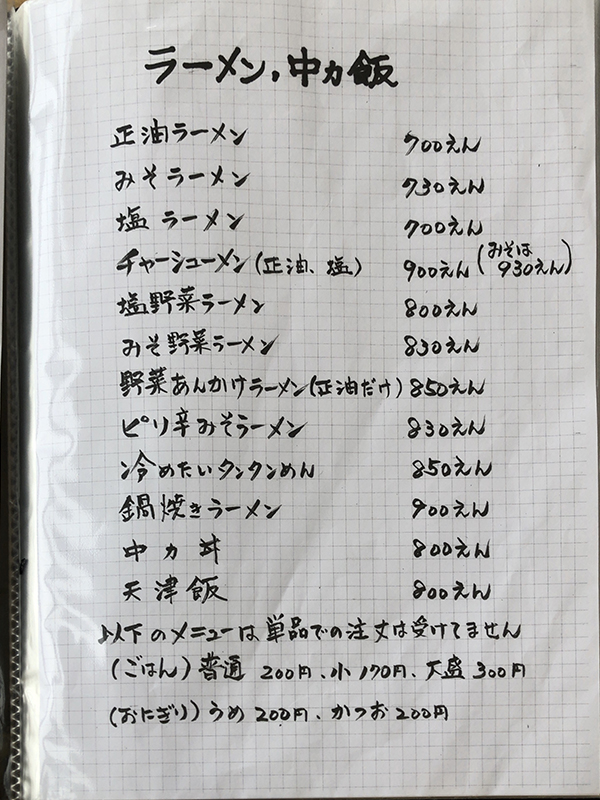 ラーメン,中カ飯
正油ラーメン 700えん
みそラーメン 730えん
塩ラーメン 700えん
チャーシューメン(正油、塩) 900えん(みそは930えん)
塩野菜ラーメン 800えん
みそ野菜ラーメン 830えん
野菜あんかけラーメン(正油だけ) 850えん
ピリ辛みそラーメン 830えん
冷めたいタンタンめん 850えん
鍋焼きラーメン 900えん
中カ丼 800えん
天津飯 800えん
以下のメニューは単品での注文は受けてません
(ごはん)普通 200円、小170円、大盛300円
(おにぎり)うめ200円、かつお200円